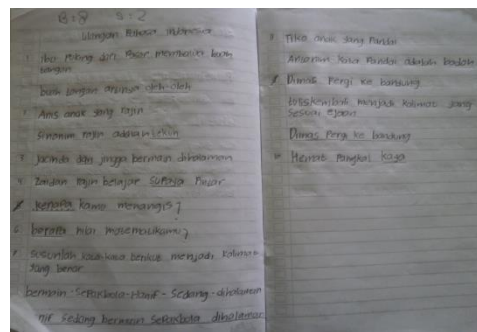 B : 8 S : 2
Ulangan Bahasa Indonesia
1 Ibu Pulang dari Pasar membawa buah
tangan
buah tangan artinya oleh-oleh
2 Anis anak yang rajin
Sinonim rajin adalah tekun
3 Jacinda dan jingga bermain dihalaman
4 Zaidan rajin belajar supaya Pintar
5 kenapa kamu menangis?
6 berapa nilai matematikamu?
7 susunlah kata-kata berikut menjadi kalimat
yang benar
bermain-sePakbola-Hanif-Sedang-dihalaman
nif sedang bermain sePakbola dihalaman
8 Tika anak yang Pandai
Antonim kata Pandai adalah bodoh
9 Dimas Pergi ke bandung
kembali menjadi kalimat yang
sesuai ejaan
Dimas Pergi ke bandung
10 Hemat Pangkal kaya